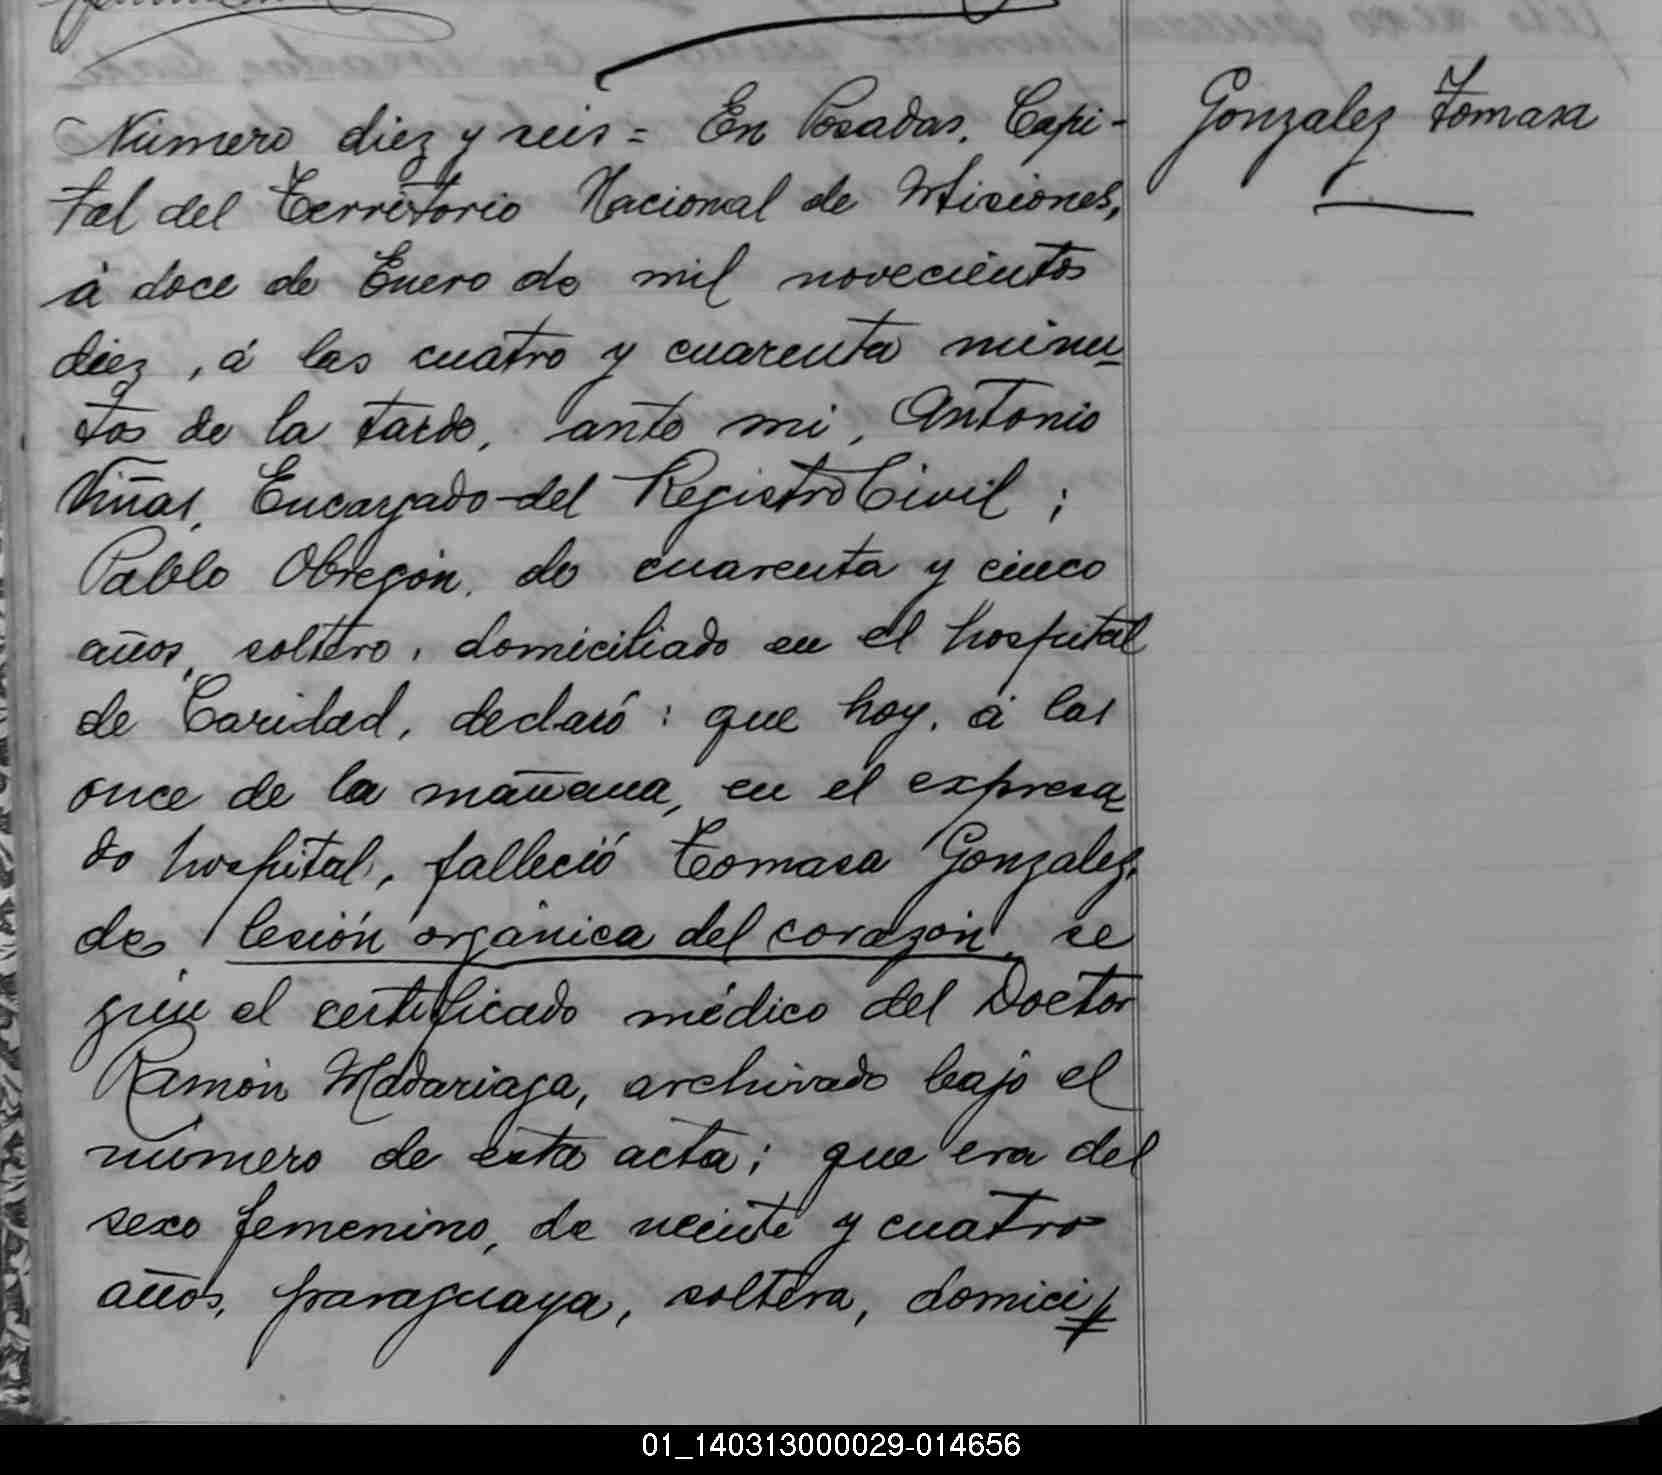 Número diez y seis = En Posadas, Capi-
tal del Territorio Nacional de Misiones,
á doce de Enero de mil novecientos
diez, á las cuatro y cuarenta minu-
tos de la tarde, ante mi, Antonio
Viñas, Encargado del Registro Civil;
Pablo Obregón, de cuarenta y cinco
años, soltero, domiciliado en el hospital
de Caridad, declaró: que hoy, á las
once de la mañana, en el expresa-
do hospital, falleció Tomasa Gonzalez,
de lesión orgánica del corazón, se
gún el certificado médico del Doctor
Ramón Madariaga, archivado bajo el
número de esta acta; que era del
sexo femenino, de veinte y cuatro
años, paraguaya, soltera, domici
Gonzalez Tomasa
01_140313000029-014656